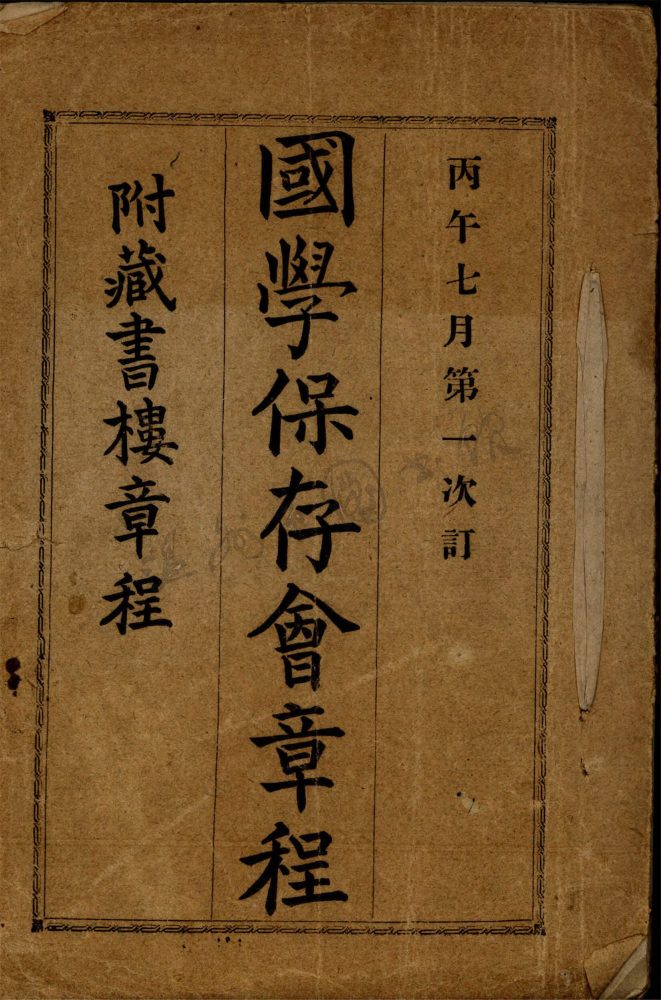 丙午七月第一次訂
國學保存會章程
附藏書樓章程